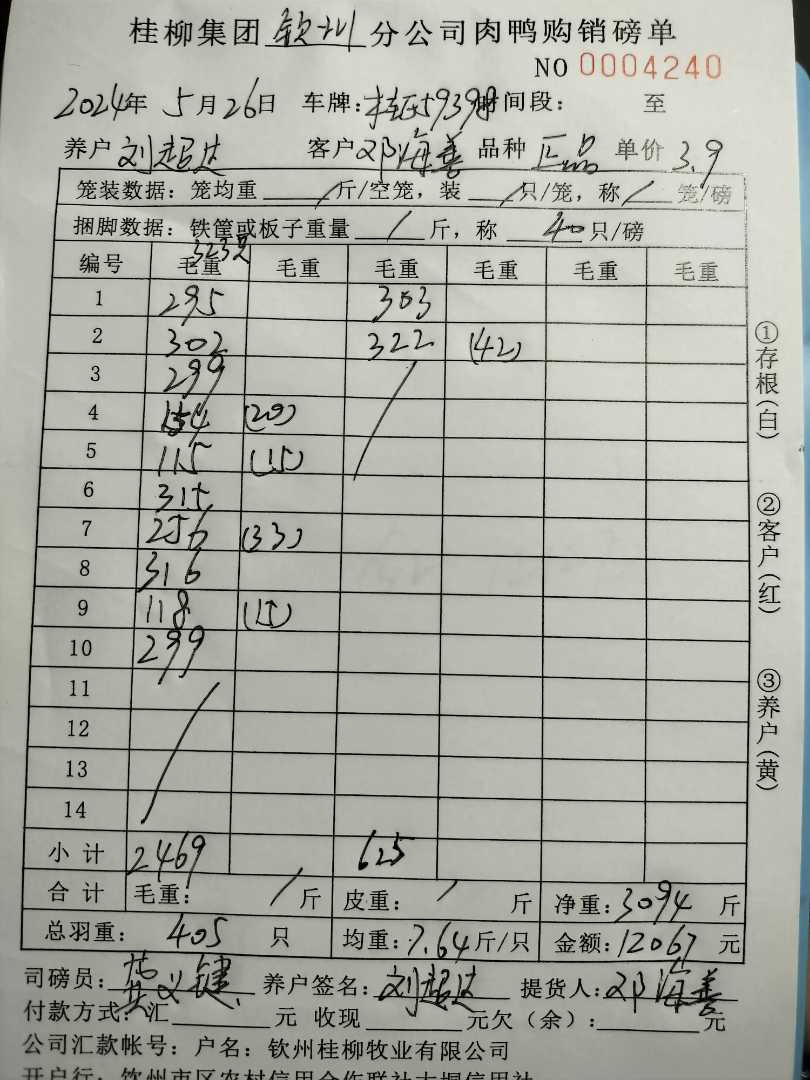 桂柳集团 钦州 分公司肉鸭购销磅单
NO 0004240
2024年 5月26日 车牌: 时间段: 至
养户 刘超达 客户 邓海善 品种 正品 单价 3.9
笼装数据: 笼均重 / 斤/空笼, 装 / 只/笼, 称 / 笼/磅
捆脚数据: 铁筐或板子重量 / 斤, 称 40 只/磅
323只
编号 毛重 毛重 毛重 毛重 毛重 毛重
1 295 303
2 302 322 (42)
3 299
4 154 (20)
5 115 (15)
6 315
7 256 (33)
8 316
9 118 (15)
10 299
11
12
13
14
小计 2469 625
合计 毛重: / 斤 皮重: / 斤 净重: 3094 斤
总羽重: 405 只 均重: 7.64 斤/只 金额: 12067 元
司磅员: 黄义键 养户签名: 刘超达 提货人: 邓海善
付款方式: 汇 元 收现 元欠(余): 元
公司汇款帐号: 户名: 钦州桂柳牧业有限公司
①存根(白)
②客户(红)
③养户(黄)